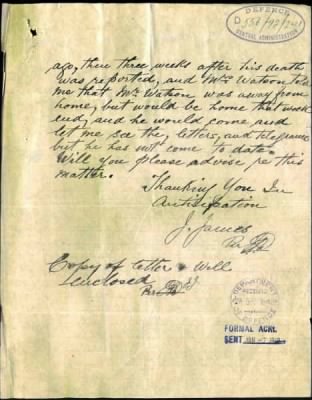 DEFENCE
CENTRAL ADMINISTRATION
ago, then three weeks after his death
was reported, and Mrs Watson told
me that Mr Watson was away from
home, but would be home that week
end, and he would come and
let me see the letters, and telegrams
but he has not come to date.
Will you please advise re this
matter.
Thanking You In
Anticipation
J. James
Per
Copy of letter & Will
enclosed
Per
DEPARTMENT
OF DEFENCE
FORMAL ACK.
SENT